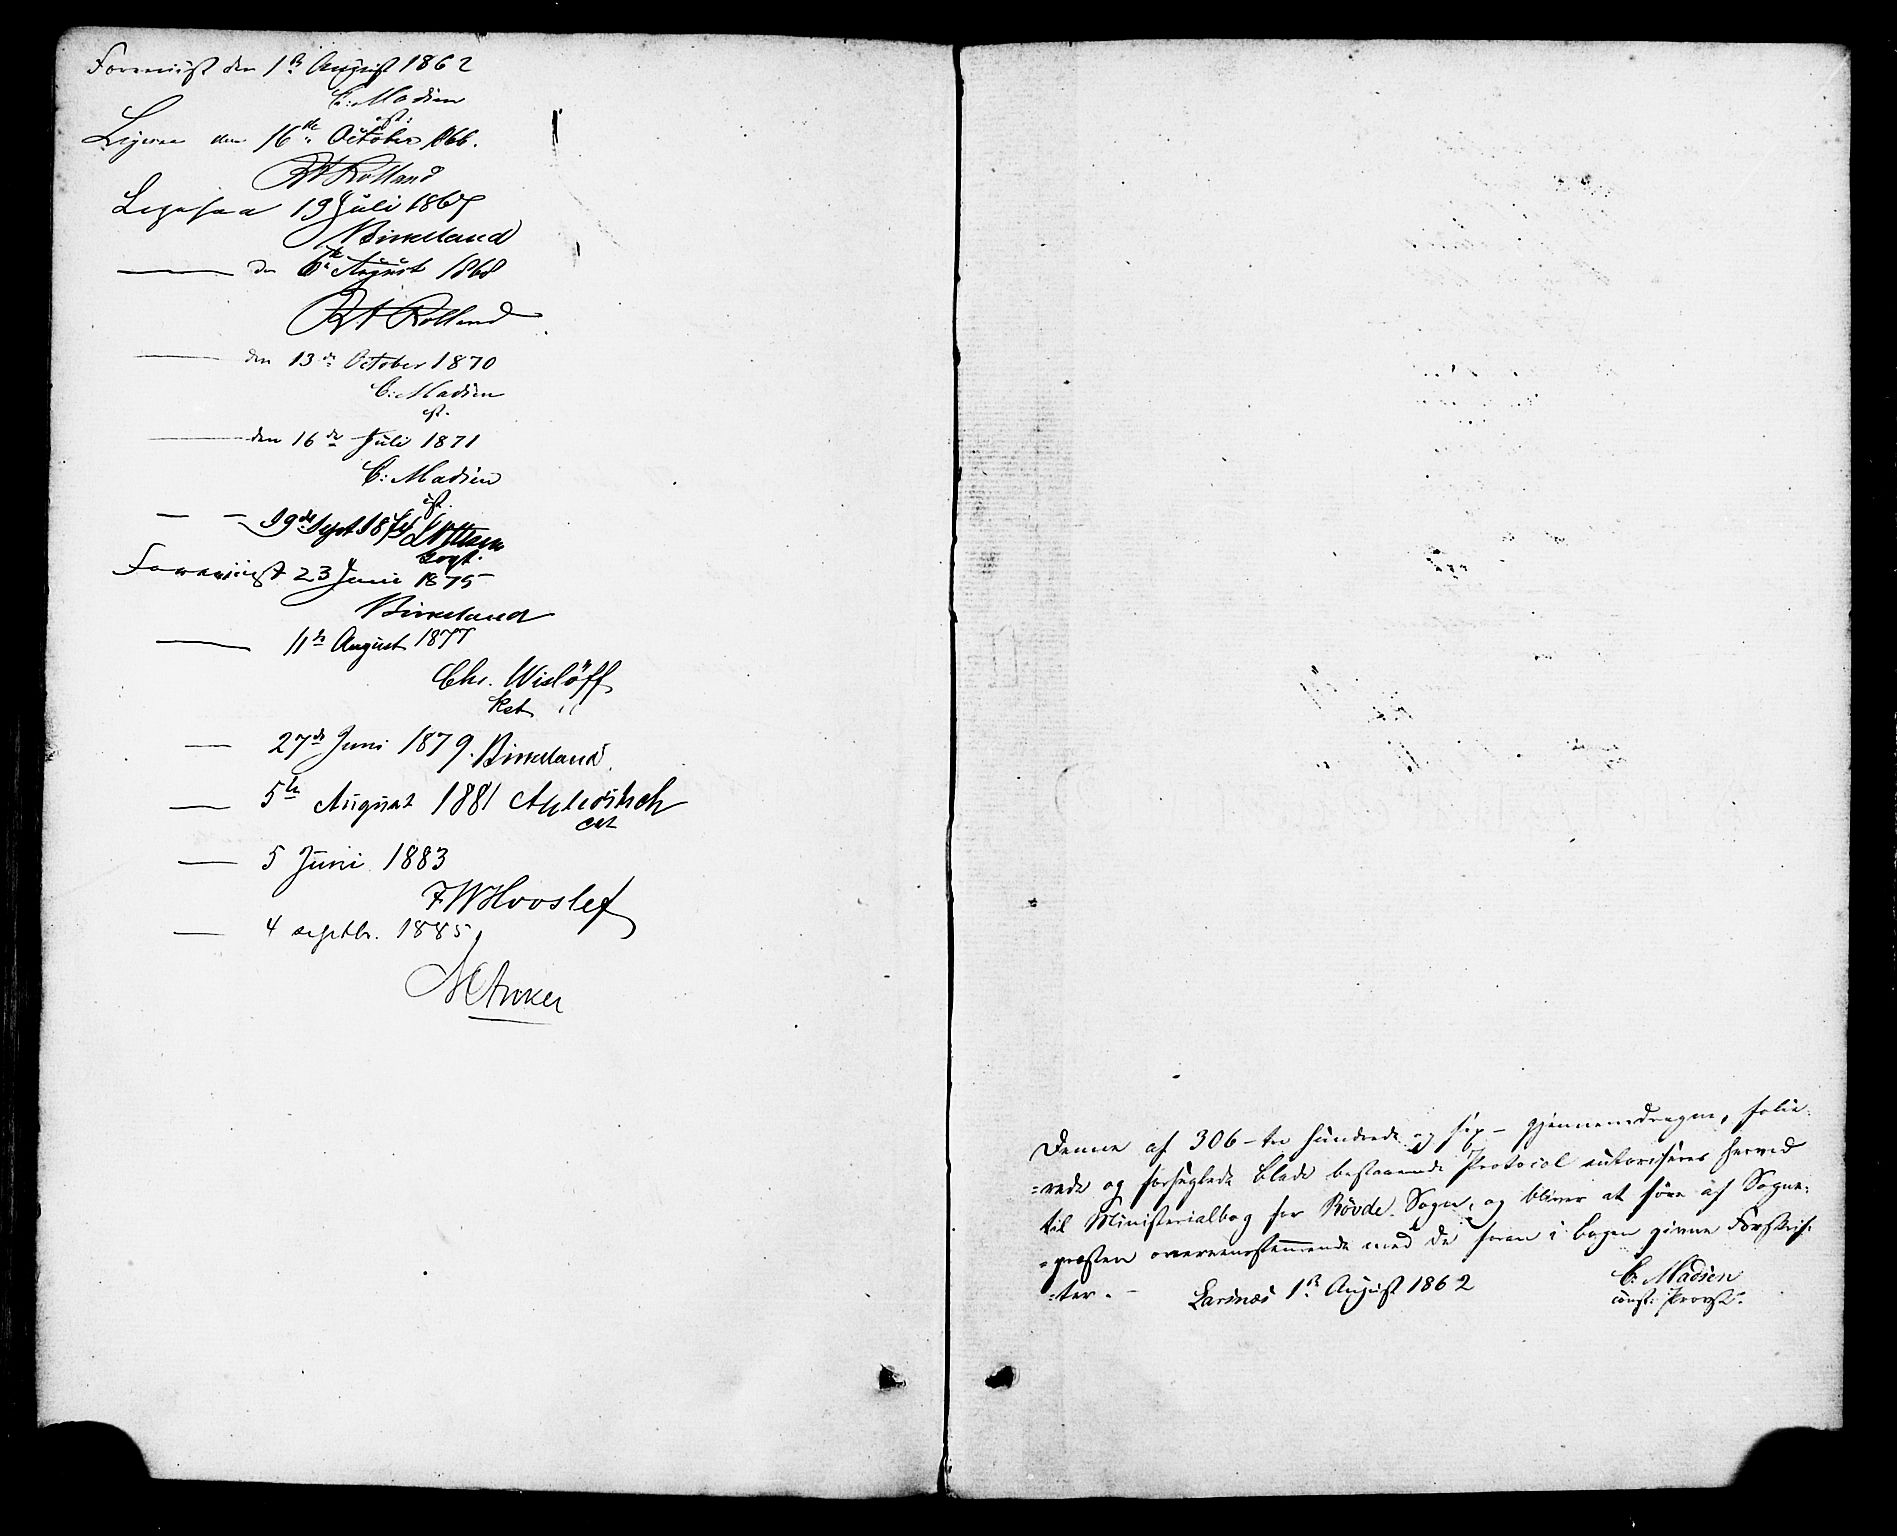 Foreviist den 1st August 1862
C: Madsen
cst:
Ligesaa den 16de October 1866.
Rolland
Ligesaa 19 Juli 1867
Birkeland
— den 6te August 1868
Rolland
— den 13de October 1870
C: Madsen
cst.
— den 16de Juli 1871
C: Madsen
cst.
— — 19de Sept 187
const.
Foreviist 23 Juni 1875
Birkeland
— 11te August 1877
Chr. Wislöff
kst
— 27de Juni 1879. Birkeland.
— 5te August 1881
cst
— 5 Juni 1883
FWHvoslef
— 4 septbr. 1885
Anker
Denne af 306 – tre hundrede og sex – gjennemdragne, folie-
=rede og forseglede Blade bestaaende Protocol autoriseres herved
til Ministerialbog for Rövde Sogn, og bliver at före af Sogne-
=præsten overeensstemmende med de foran i Bogen givne Forskrif-
=ter. –
Larsnæs 1st August 1862
C: Madsen
const: Provst.